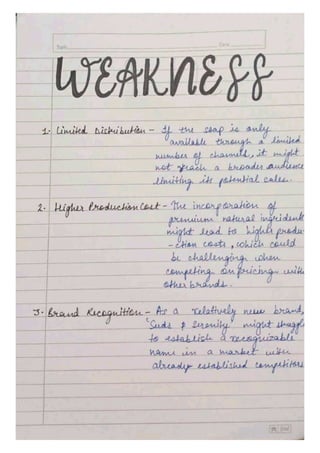 Topic
Date
WEAKNESS
1. Limited Distribution - If the soap is only
available through a limited
number of channels, it might
not reach a broader audience
limiting its potential sales.
2. Higher Production Cost - The incorporation of
premium natural ingridents
might lead to higher produ-
-ction costs, which could
be challenging when
competing on pricing with
other brands.
3. Brand Recognition - As a relatively new brand,
'Suds & Serenity' might struggle
to establish a recognizable
name in a market with
already established competitors